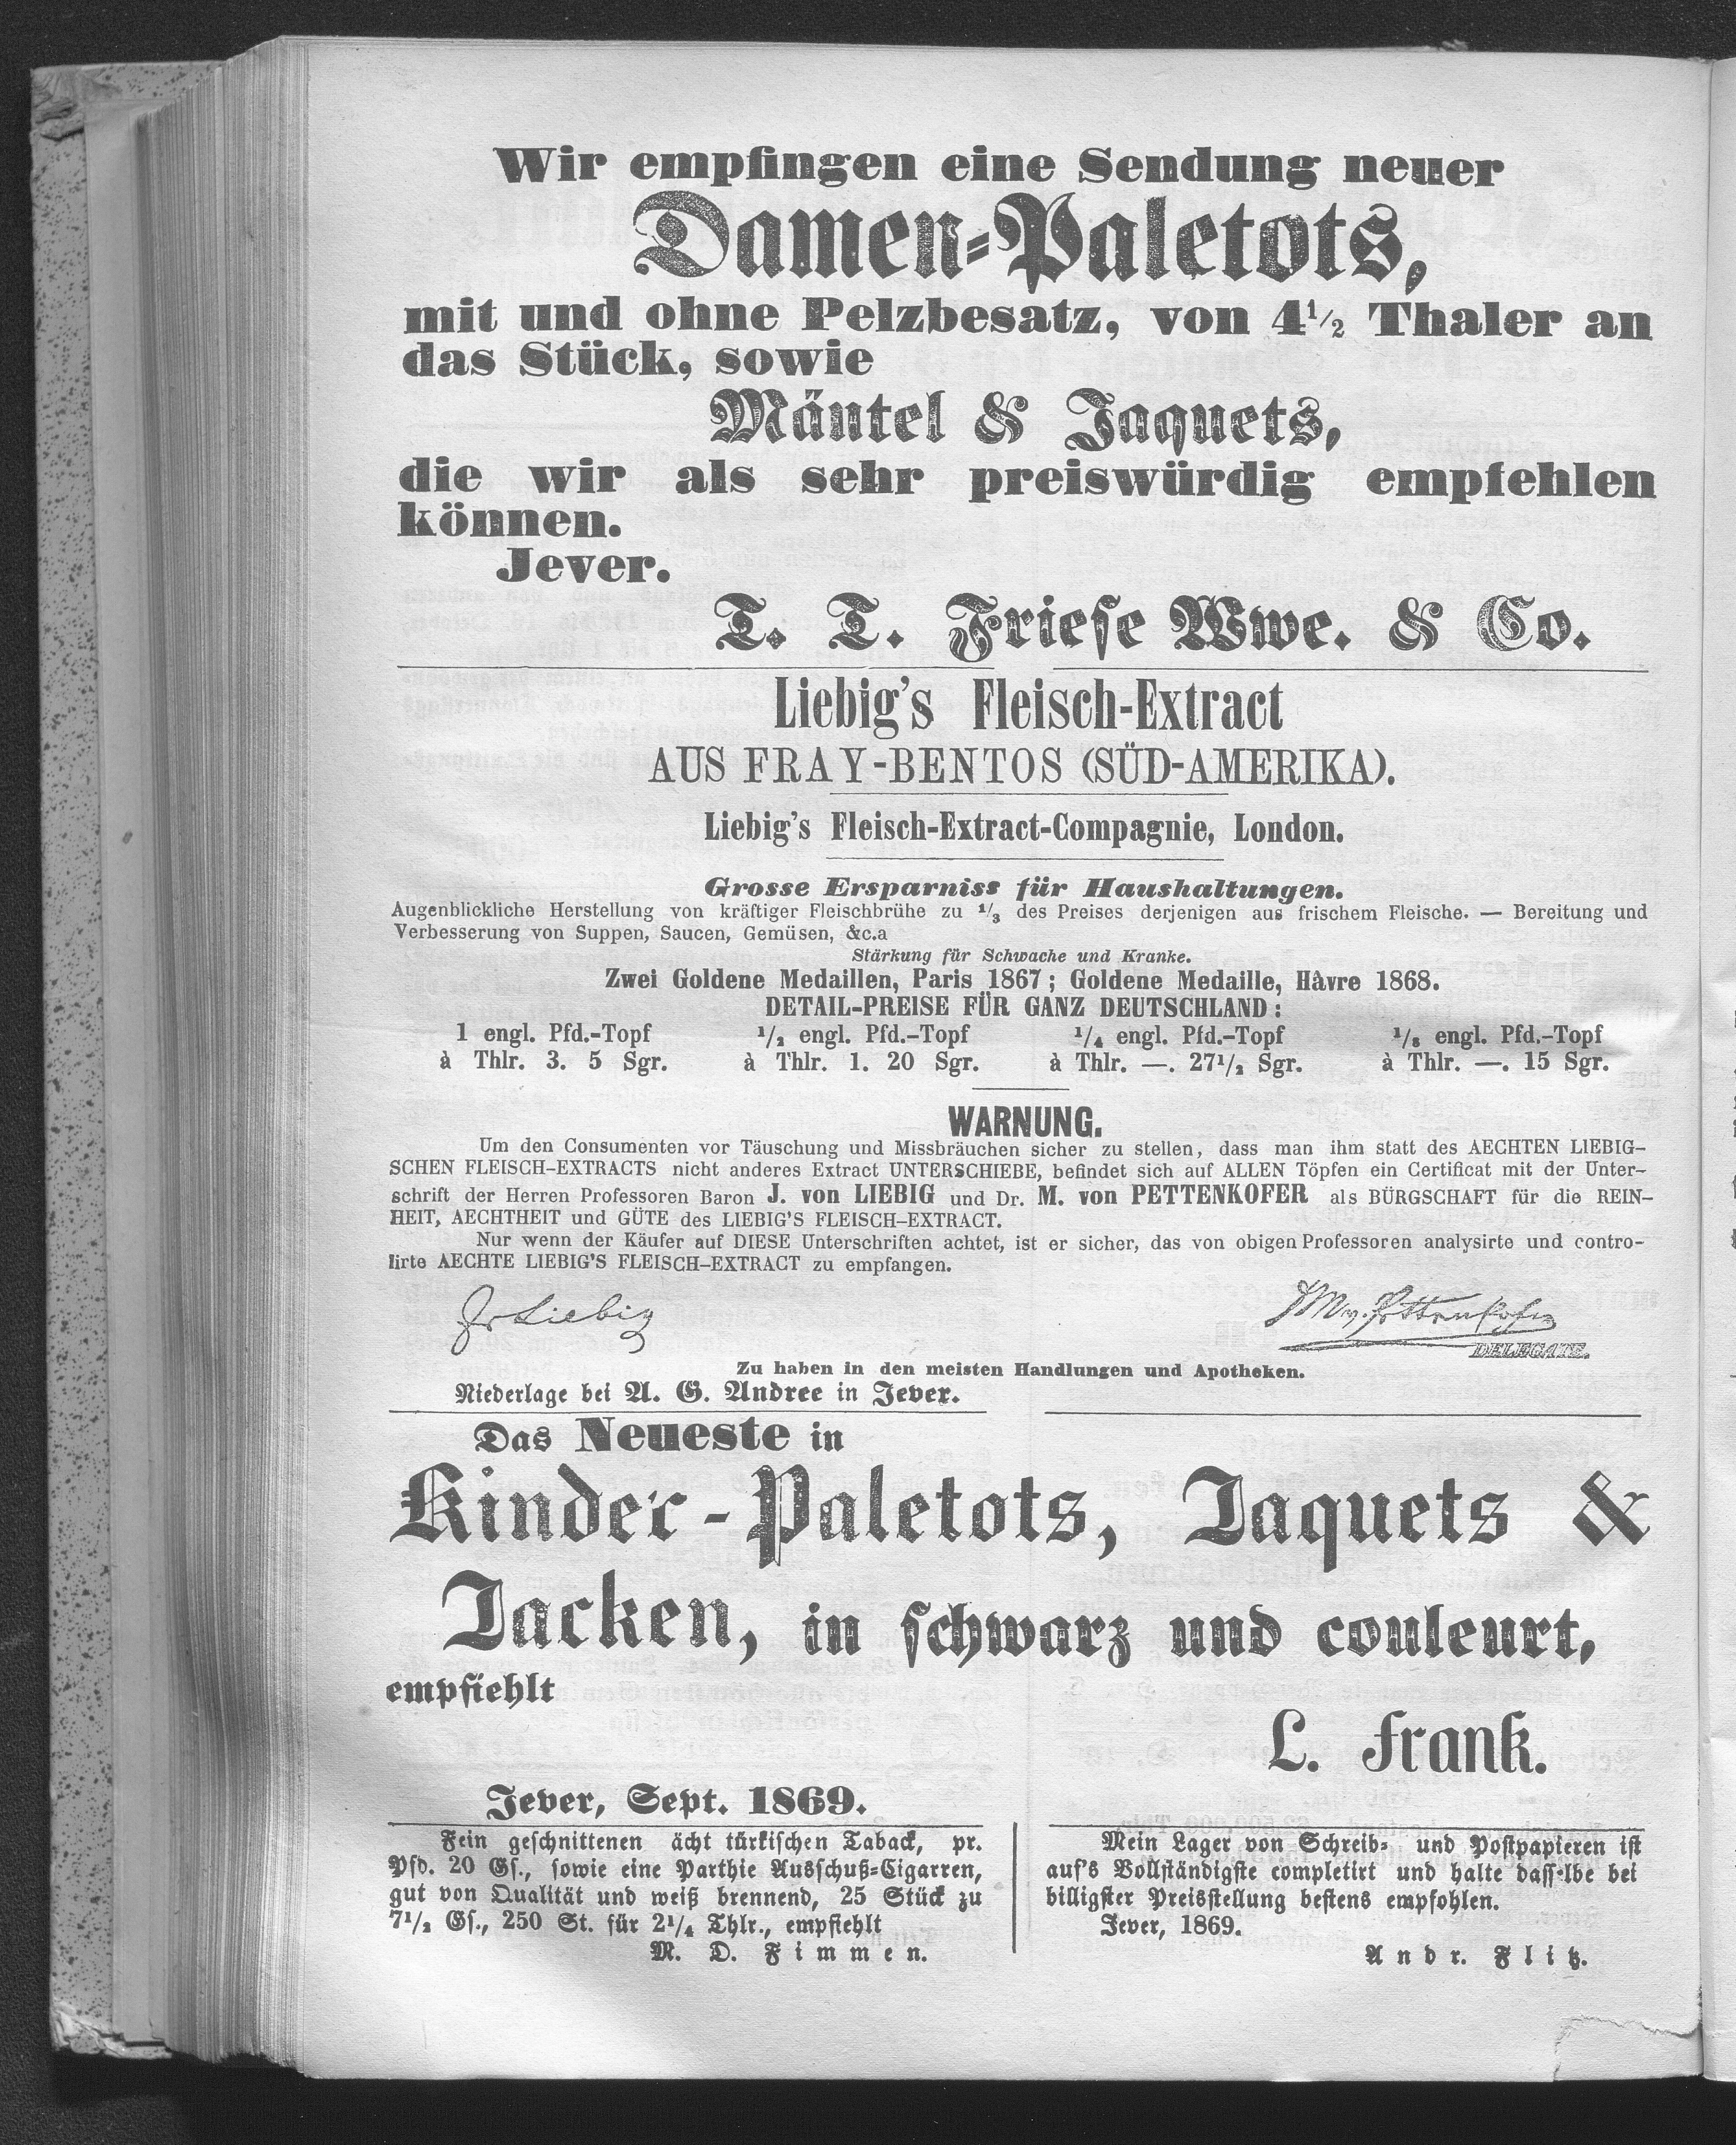 Wir empfingen eine Sendung neuer
Damen-Paletots,
mit und ohne Pelzbesatz, von 4 1/2 Thaler an
das Stück, sowie
Mäntel & Jaquets,
die wir als sehr preiswürdig empfehlen
können.
Jever.
T. T. Friese Wwe. & Co.
Liebig's Fleisch-Extract
AUS FRAY-BENTOS (SÜD-AMERIKA).
Liebig's Fleisch-Extract-Compagnie, London.
Grosse Ersparniss für Haushaltungen.
Augenblickliche Herstellung von kräftiger Fleischbrühe zu 1/3 des Preises derjenigen aus frischem Fleische. — Bereitung und
Verbesserung von Suppen, Saucen, Gemüsen, &c.a
Stärkung für Schwache und Kranke.
Zwei Goldene Medaillen, Paris 1867; Goldene Medaille, Hâvre 1868.
DETAIL-PREISE FÜR GANZ DEUTSCHLAND:
1 engl. Pfd.-Topf 1/2 engl. Pfd.-Topf 1/4 engl. Pfd.-Topf 1/8 engl. Pfd.-Topf
à Thlr. 3. 5 Sgr. à Thlr. 1. 20 Sgr. à Thlr. —. 27 1/2 Sgr. à Thlr. —. 15 Sgr.
WARNUNG.
Um den Consumenten vor Täuschung und Missbräuchen sicher zu stellen, dass man ihm statt des AECHTEN LIEBIG-
SCHEN FLEISCH-EXTRACTS nicht anderes Extract UNTERSCHIEBE, befindet sich auf ALLEN Töpfen ein Certificat mit der Unter-
schrift der Herren Professoren Baron J. von LIEBIG und Dr. M. von PETTENKOFER als BÜRGSCHAFT für die REIN-
HEIT, AECHTHEIT und GÜTE des LIEBIG'S FLEISCH-EXTRACT.
Nur wenn der Käufer auf DIESE Unterschriften achtet, ist er sicher, das von obigen Professoren analysirte und contro-
lirte AECHTE LIEBIG'S FLEISCH-EXTRACT zu empfangen.
Liebig M v. Pettenkofer
DELEGATE.
Zu haben in den meisten Handlungen und Apotheken.
Niederlage bei A. G. Andree in Jever.
Das Neueste in
Kinder-Paletots, Jaquets &
Jacken, in schwarz und couleurt,
empfiehlt
L. Frank.
Jever, Sept. 1869.
Fein geschnittenen ächt türkischen Taback, pr.
Pfd. 20 Gs., sowie eine Parthie Ausschuß-Cigarren,
gut von Qualität und weiß brennend, 25 Stück zu
7 1/2 Gs., 250 St. für 2 1/4 Thlr., empfiehlt
M. D. Fimmen.
Mein Lager von Schreib- und Postpapieren ist
auf's Vollständigste completirt und halte dasselbe bei
billigster Preisstellung bestens empfohlen.
Jever, 1869.
Andr. Flitz.